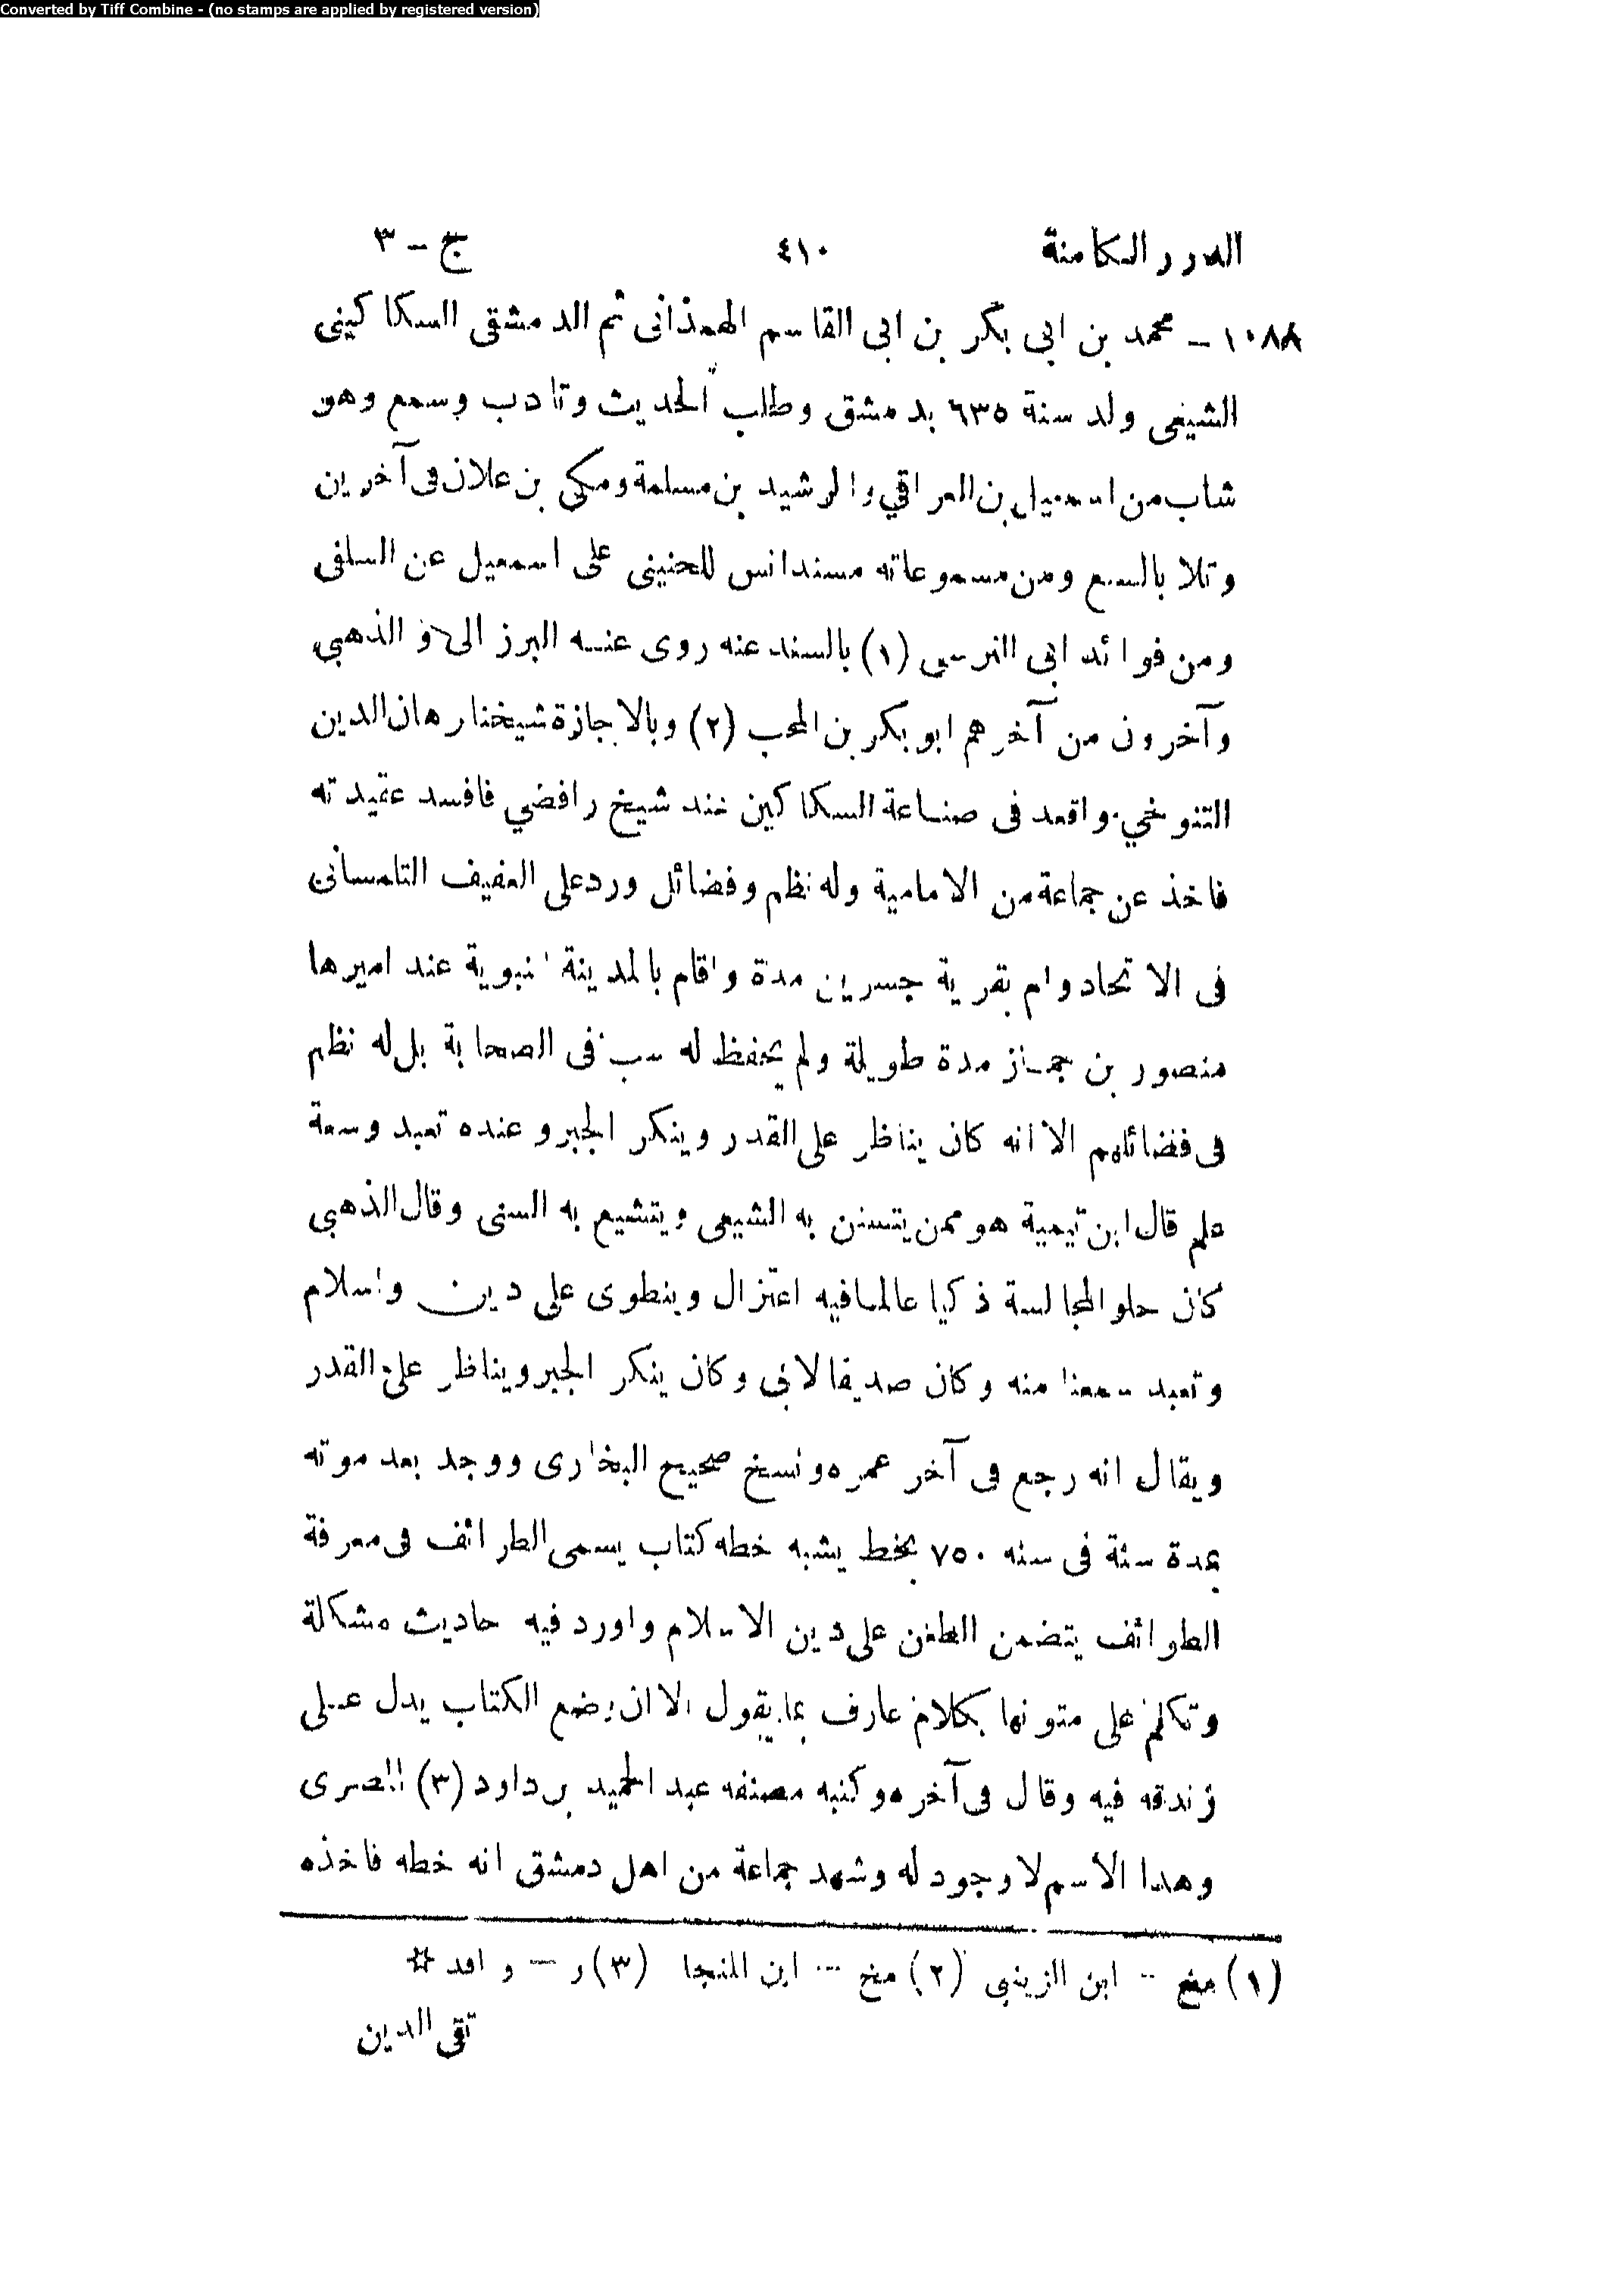 Converted by Tiff Combine - (no stamps are applied by registered version)
الدرر الكامنة ٤١٠ ج - ٣
١٠٨٨ - محمد بن ابى بكر بن ابى القاسم الهمذانى ثم الدمشقى السكاكينى
الشيعى ولد سنة ٦٣٥ بدمشق وطلب الحديث وتادب وسمع وهو
شاب من اسمعيل بن العراقي والرشيد بن مسلمة ومكى بن علان فى آخرين
وتلا بالسبع ومن مسموعاته مسند انس للحنينى على اسمعيل عن السلفى
ومن فوائد ابى النرسى (١) بالسند عنه روى عنه البرزالى و الذهبي
وآخرون من آخرهم ابو بكر بن المحب (٢) وبالاجازة شيخنا برهان الدين
التنوخي واقعد فى صناعة السكاكين عند شيخ رافضي فافسد عقيدته
فاخذ عن جماعة من الامامية وله نظم وفضائل ورد على العفيف التلمسانى
فى الاتحاد وام بقرية جسرين مدة واقام بالمدينة النبوية عند اميرها
منصور بن جماز مدة طويلة ولم يحفظ له سب فى الصحابة بل له نظم
فى فضائلهم الا انه كان يناظر على القدر وينكر الجبر وعنده تعبد وسعة
علم قال ابن تيمية هو ممن يتسنن به الشيعى ويتشيع به السنى وقال الذهبي
كان حلو المجالسة ذكيا عالما فيه اعتزال وينطوى على دين واسلام
وتعبد سمعنا منه وكان صديقا لابى وكان ينكر الجبر ويناظر على القدر
ويقال انه رجع فى آخر عمره ونسخ صحيح البخارى ووجد بعد موته
بمدة سنة فى سنه ٧٥٠ بخط يشبه خطه كتاب يسمى الطرائف فى معرفة
الطوائف يتضمن الطعن على دين الاسلام واورد فيه احاديث مشكلة
وتكلم على متونها بكلام عارف بما يقول الا ان وضع الكتاب يدل على
زندقه فيه وقال فى آخره وكتبه مصنفه عبد الحميد بن داود (٣) المصرى
وهذا الاسم لا وجود له وشهد جماعة من اهل دمشق انه خطه فاخذه
(١) منخ - ابن الزينبى (٢) منخ - ابن المنجا (٣) ر - و افد ☆
تقى الدين